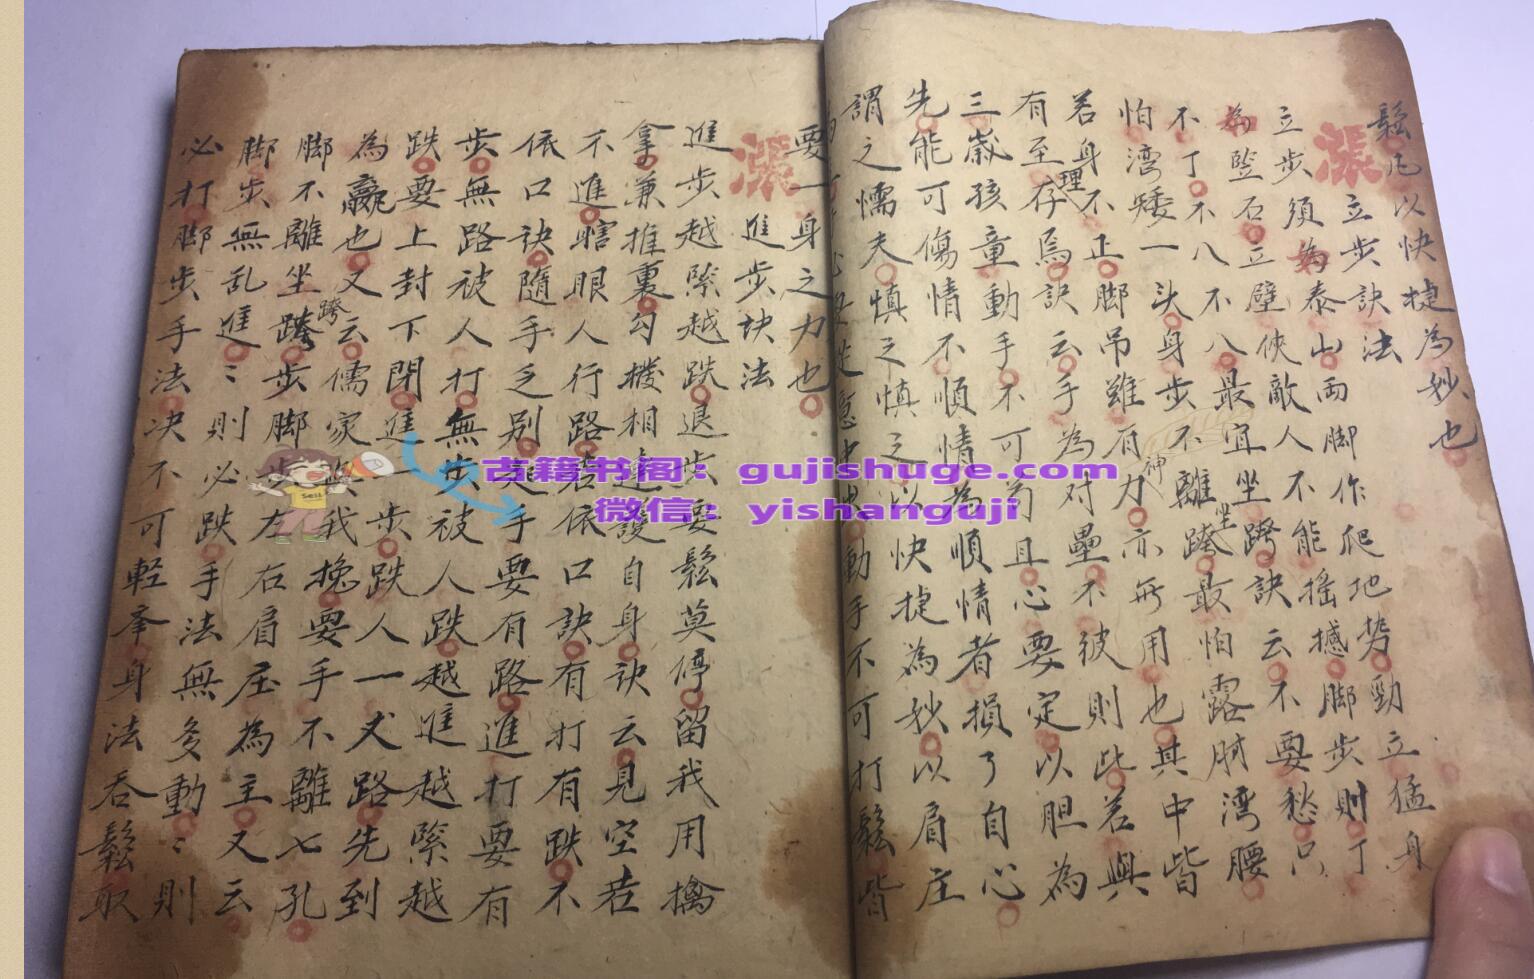 鬆凡以快捷為妙也
立步訣法
立步須為泰山兩脚作爬地势勁立猛身
為監石立壁侠敵人不能摇撼脚步則丁
不丁不八不八最宜坐跨訣云不要愁只
怕湾矮一头身步不離跨最怕露胕湾腰
神
坐
若身不正脚吊雖有力亦無用也其中皆
理
有至存焉訣云手為对壘不彼則此若與
三歲孩童動手不可苟且心要定以胆為
先能可傷情不順情為順情者損了自心
謂之懦夫慎之慎之以快捷為妙以肩庄
動手不可打鬆皆
要一身之力也
進步訣法
進步越緊越跌退步要鬆莫停留我用擒
拿兼推裏勾機相連護自身訣云見空若
不進瞎眼人行路若依口訣有打有跌不
依口訣隨手乏别走手要有路進打要有
步無路被人打無步被人跌越進越緊越
跌要上封下閉進一步跌人一丈路先到
為贏也又云儒家與我挽要手不離七孔
脚不離坐跨步脚步左右肩庄為主又云
跨
脚步無乱進〻則必跌手法無多動〻則
必打脚步手法决不可輕奉身法吞鬆取
漲
漲
古籍书阁：gujishuge.com
微信：yishanguji
Sell